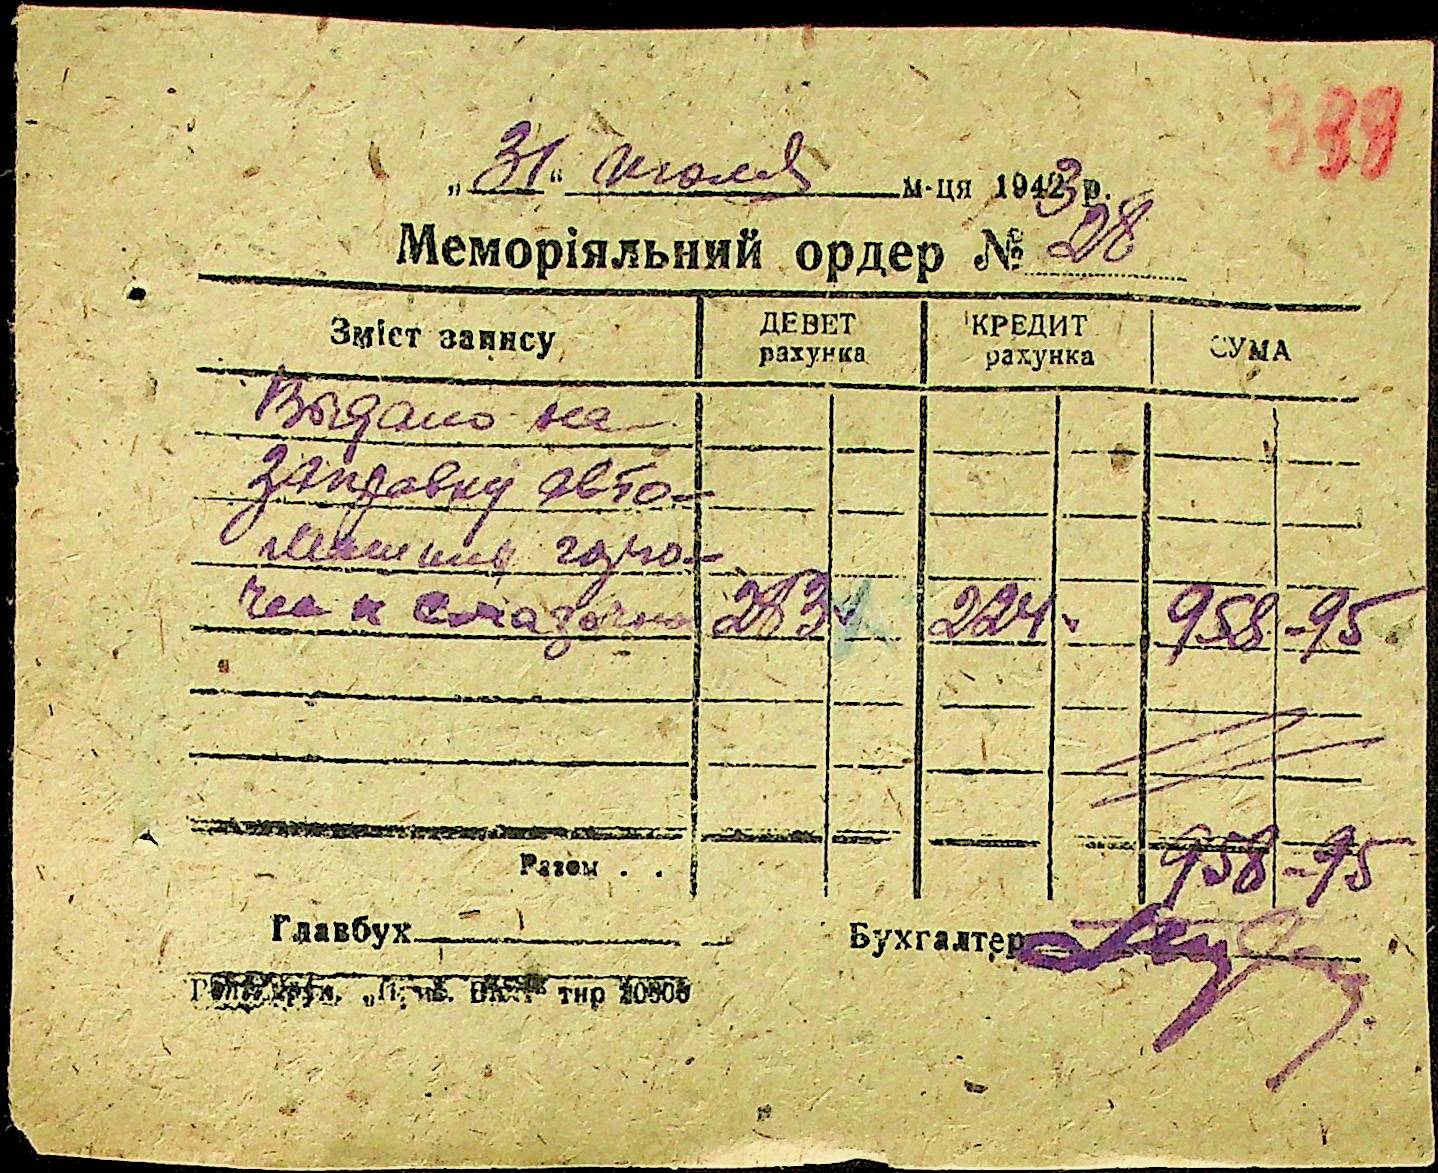 339
„31“ июля м-ця 1943 р.
Меморіяльний ордер № 28
Зміст запису ДЕБЕТ рахунка КРЕДИТ рахунка СУМА
Выдано на
заправку авто-
машины горю-
чее и смазочн 283 224 958-95
Разом . . 958-95
Главбух Бухгалтер
тир 10000